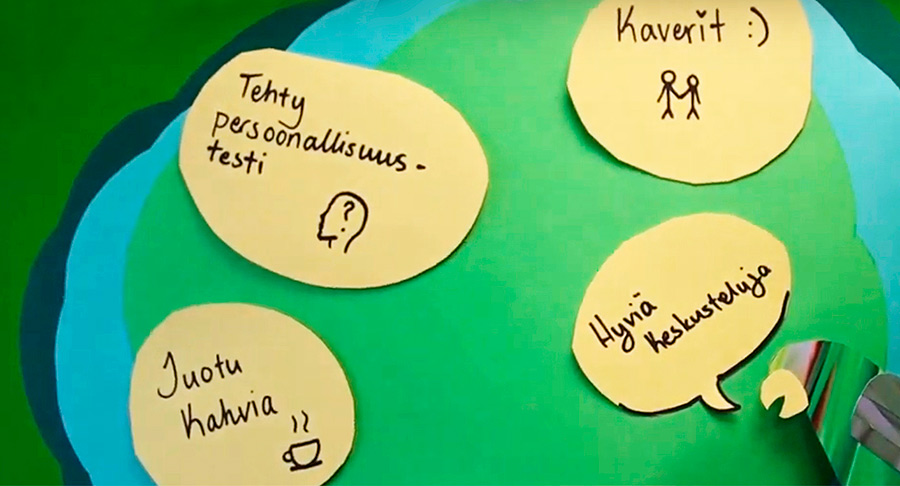 Tehty
persoonallisuus-
testi
?
Kaverit :)
Juotu
kahvia
Hyviä
keskusteluja